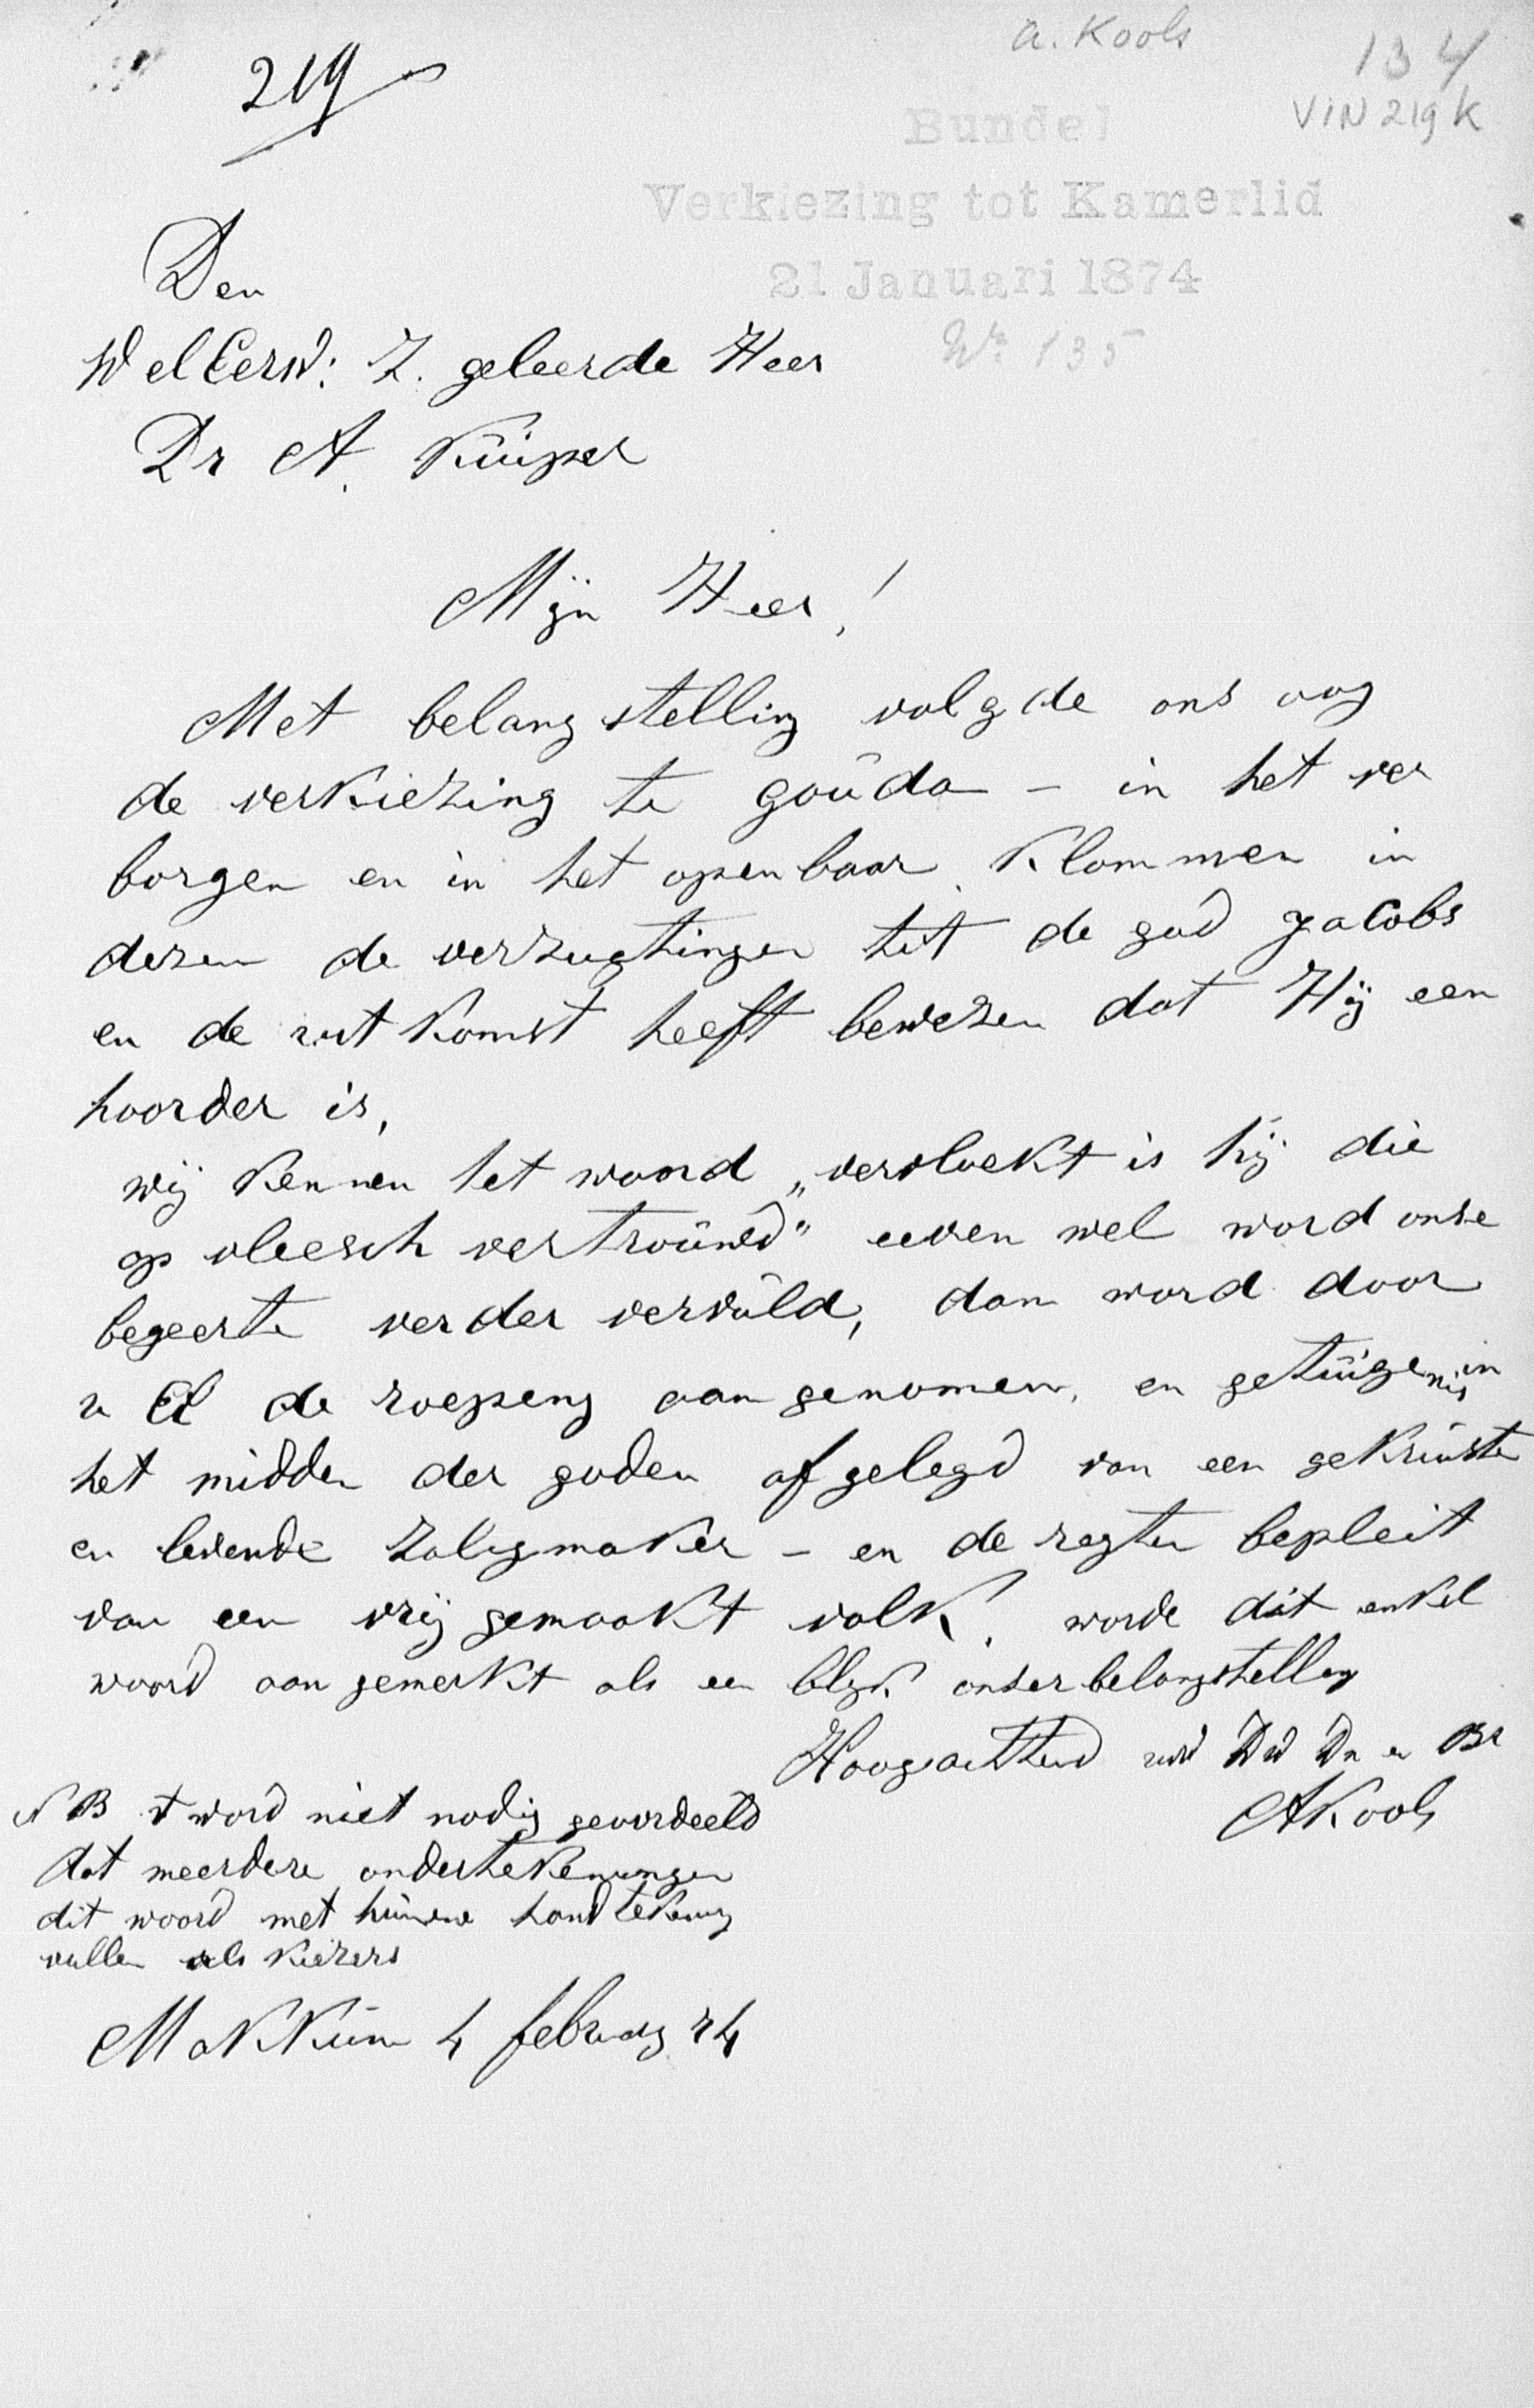 a. Kools
134
VIN 219 K
219
Bundel
Verkiezing tot Kamerlid
21 Januari 1874
No 135
Den
WelEerw: Z. geleerde Heer
Dr A. Kuiper
Mijn Heer,!
Met belangstelling volgde ons oog
de verkiezing te gouda - in het ver
borgen en in het openbaar. Klommen in
dezen de verzugtingen tot de god Jacobs
en de uitkomst heeft bewezen dat Hij een
hoorder is,
wij kennen het woord „vervloekt is hij die
op vleesch vertrouwd" eeven wel word onse
begeerte verder vervuld, dan word door
u El de roepeng aangenomen, en getuigenis in
het midden der goden afgelegd van een gekruiste
en levende zaligmaker - en de regten bepleit
van een vrij gemaakt volk. worde dit enkel
woord aangemerkt als een blyk onser belangstelling
Hoogachtend uw Dw Dn en Br
AKools
NB t word niet nodig geoordeeld
dat meerdere ondertekenungen
dit woord met hunne handtekeng
vullen als kiezers
Makkum 4 february 74